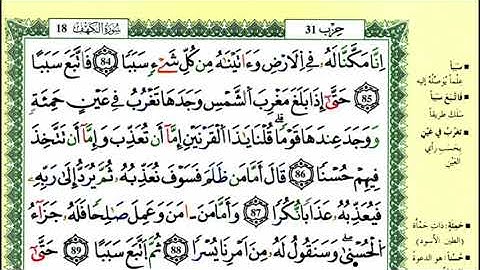 حزب 31
سورة الكهف 18
إِنَّا مَكَّنَّا لَهُۥ فِي الْأَرْضِ وَءَاتَيْنَٰهُ مِن كُلِّ شَيْءٍ سَبَبًا 84 فَاتَّبَعَ سَبَبًا
85 حَتَّىٰ إِذَا بَلَغَ مَغْرِبَ الشَّمْسِ وَجَدَهَا تَغْرُبُ فِي عَيْنٍ حَمِئَةٍ
وَوَجَدَ عِندَهَا قَوْمًا قُلْنَا يَٰذَا الْقَرْنَيْنِ إِمَّا أَن تُعَذِّبَ وَإِمَّا أَن تَتَّخِذَ
فِيهِمْ حُسْنًا 86 قَالَ أَمَّا مَن ظَلَمَ فَسَوْفَ نُعَذِّبُهُۥ ثُمَّ يُرَدُّ إِلَىٰ رَبِّهِۦ
فَيُعَذِّبُهُۥ عَذَابًا نُّكُرًا 87 وَأَمَّا مَنَ ـامَنَ وَعَمِلَ صَٰلِحًا فَلَهُۥ جَزَآءُ
الْحُسْنَىٰ وَسَنَقُولُ لَهُۥ مِنَ امْرِنَا يُسْرًا 88 ثُمَّ اتَّبَعَ سَبَبًا 89 حَتَّىٰ
سَبَباً
عِلْماً يُوصِلُهُ إليه
فَاتَّبَعَ سَبَباً
سَلَكَ طَرِيقاً
تَغْرُبُ في عَيْنٍ
بحسبِ رأيِ
العَيْنِ
حَمِئَةٍ: ذاتِ حَمْأة
(الطين الأسود)
حُسْناً: هو الدعوة